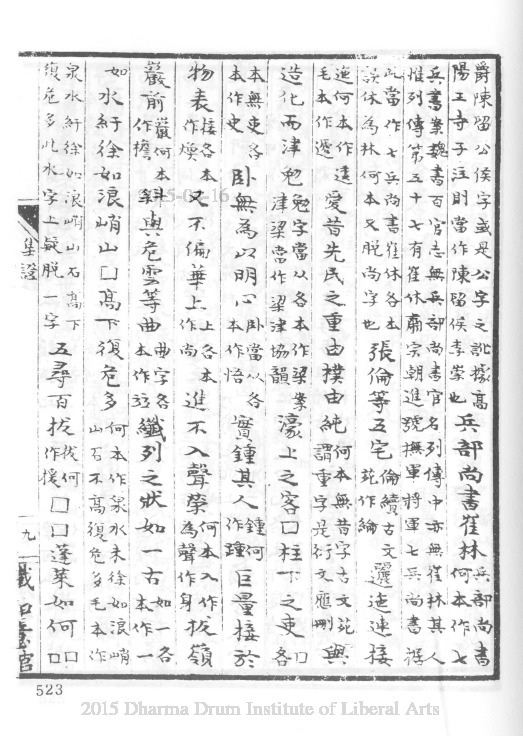 爵陳留公侯字或是公字之訛據高
陽王寺子注則當作陳留侯李崇也
兵部尚書崔林
兵部尚書
何本作七
兵書案魏書百官志無兵部尚書官名列傳中亦無崔林其人
惟列傳第五十七有崔休肅宗朝進號撫軍將軍七兵尚書
此當作七兵尚書崔休各本
誤休為林何本又脫尚字也
張倫等五宅
倫續古文
苑作綸
麗迤連接
迤何本作逶
毛本作遞
愛昔先民之重由樸由純
何本無昔字古文苑
謂重字是衍文應刪
與
造化而津勉
勉字當以各本作梁案
津梁當作梁津協韻
濠上之客口柱下之吏
口
各
本無吏各
本作史
卧無為以明心
卧當以各
本作悟
實鍾其人
鍾何
作踵
巨量接於
物表
接各本
作煥
又不偏華上
上各本
作尚
進不入聲榮
何本入作
為聲作身
拔嶺
巖前
巖何本
作檐
斜與危雲等曲
曲字各
本作並
纖列之狀如一古
如一各
本作一
如水紆徐如浪峭山口高下復危多
何本作泉水未徐如浪峭
山石不高復危多毛本作
泉水紆徐如浪峭山石高下
復危多此水字上疑脫一字
五尋百拔
拔何
作援
口口蓬萊如何
口
口
集證
九
523
2015 Dharma Drum Institute of Liberal Arts